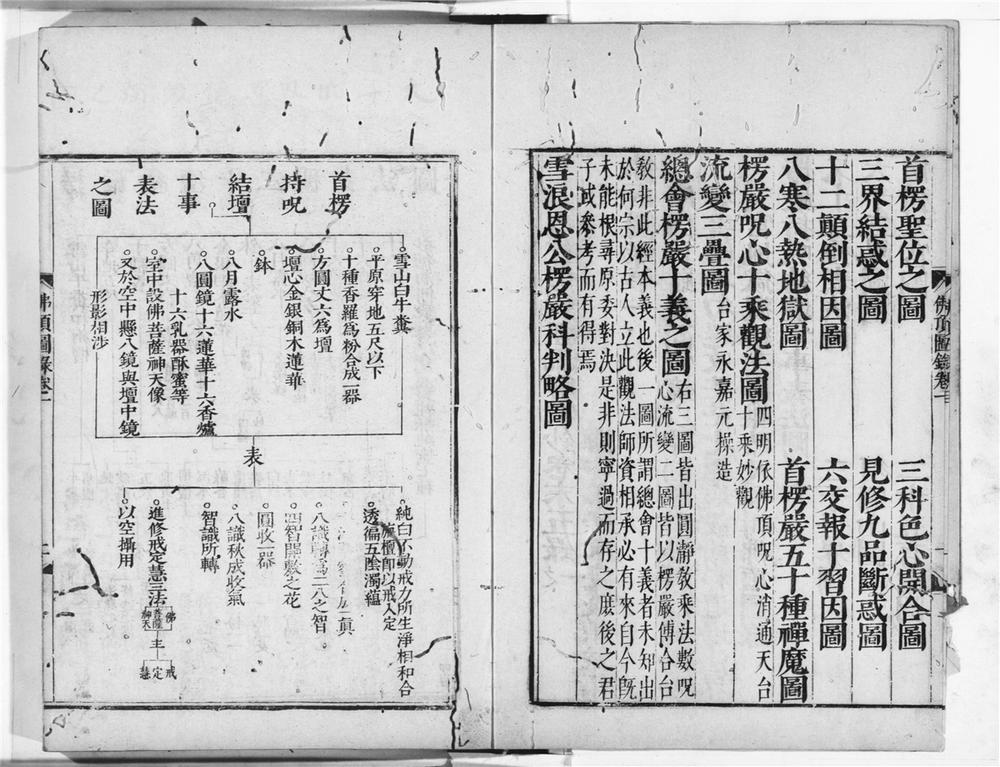 首楞聖位之圖　三科色心開合圖
三界結惑之圖　見修九品斷惑圖
十二顛倒相因圖　六交報十習因圖
八寒八熱地獄圖　首楞嚴五十種禪魔圖
楞嚴呪心十乘觀法圖
四明依佛頂呪心消通天台
十乘妙觀
流變三疊圖
台家永嘉元操造
總會楞嚴十義之圖
右三圖皆出圓瀞教乘法數呪
心流變二圖皆以楞嚴傅合台
教非此經本義也後一圖所謂總會十義者未知出
於何宗以古人立此觀法師資相承必有來自今既
未能根尋原委對決是非則寧過而存之庶後之君
子或參考而有得焉
雪浪恩公楞嚴科判略圖
佛頂圖錄卷一
首楞
持呪
結壇
十事
表法
之圖
雪山白牛糞
平原穿地五尺以下
十種香羅爲粉合成一器
方圓丈六爲壇
壇心金銀銅木蓮華
鉢
八月露水
八圓鏡十六蓮華十六香爐
十六乳器酥蜜等
室中設佛菩薩神天像
又於空中懸八鏡與壇中鏡
形影相涉
表
純白不動戒力所生淨相和合
旃檀卽以戒入定
透徧五陰濁蘊
八識轉爲二八之智
四智開敷之花
圓收一器
八識秋成收氣
智識所轉
進修戒定慧三法
佛
菩薩
神天
主
戒
定
慧
以空攝用
佛頂圖錄卷一